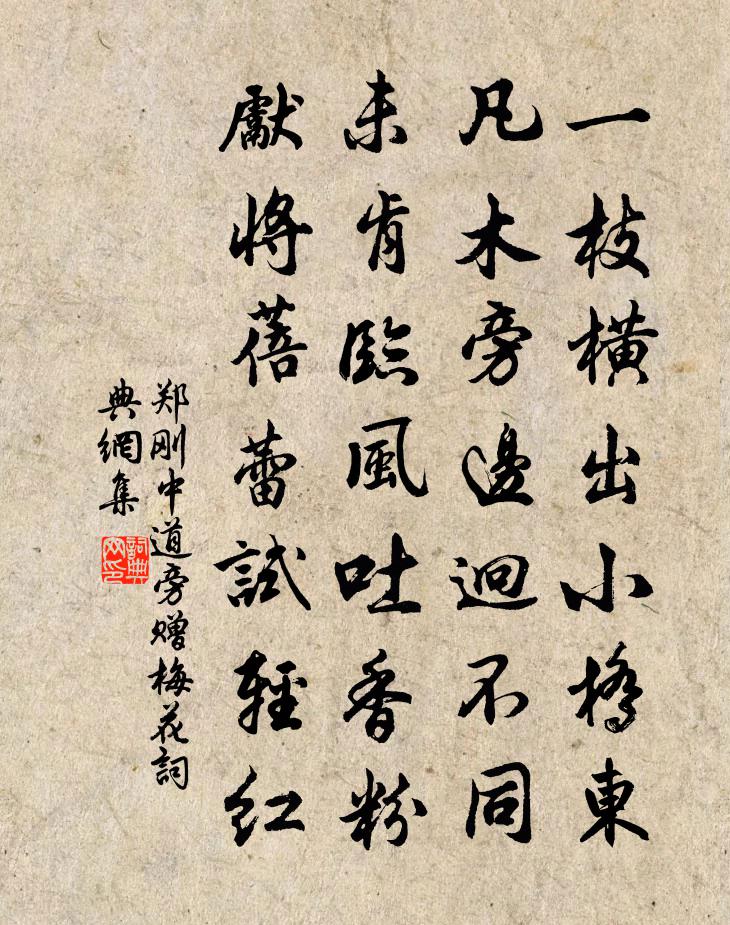 一枝橫出小橋東
凡木旁邊迥不同
未肯臨風吐香粉
獻將蓓蕾試輕紅
郑刚中道旁赠梅花詞
典網集
詞典网印